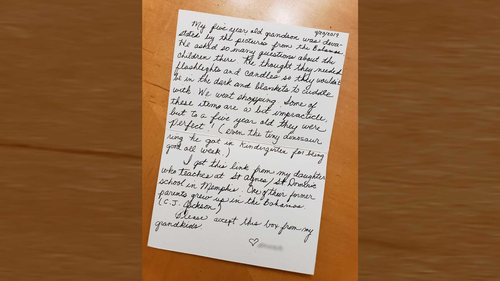 9/29/2019
My five year old grandson was deva-
stated by the pictures from the Bahamas.
He asked so many questions about the
children there. He thought they needed
flashlights and candles so they wouldn't
be in the dark and blankets to cuddle
with. We went shopping. Some of
these items are a bit impracticle,
but to a five year old they were
perfect! (even the tiny dinosaur
ring he got in Kindergarten for being
good all week)
I got this link from my daughter
who teaches at St Agnes/St Dominic
school in Memphis. One of their former
parents grew up in the Bahamas
(C.J. Jackson)
Please accept this box from my
grandkids.